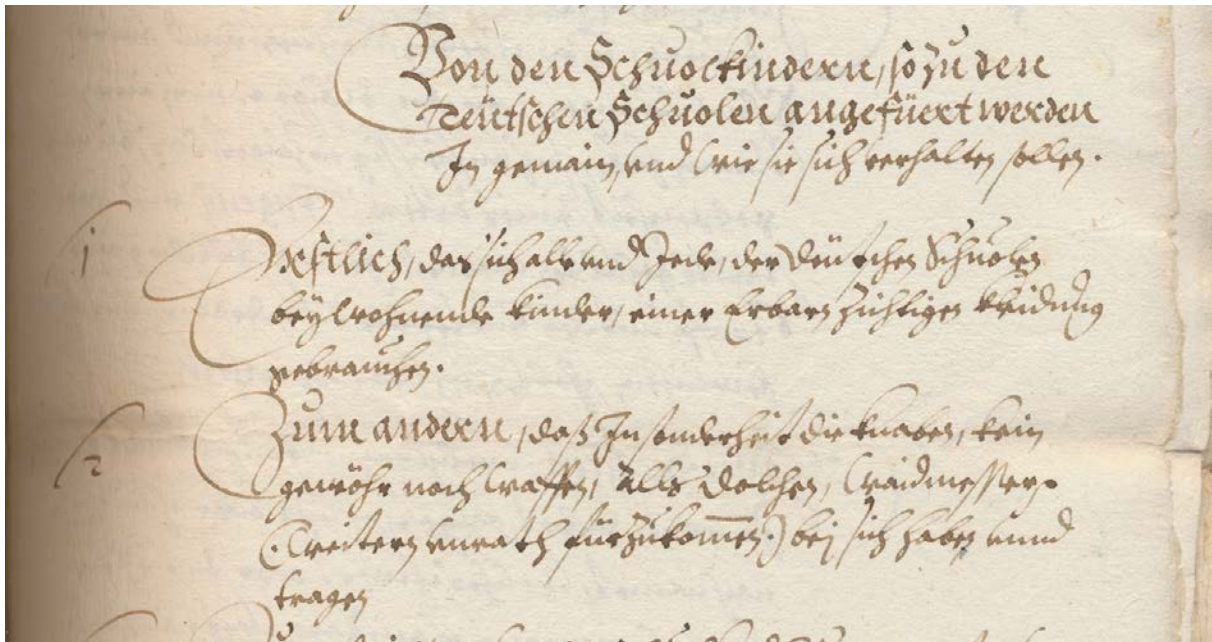 Von den Schuolkindern, so zu den
Teütschen Schuolen angefüert werden
In gemain, vnd wie sie sich verhalten sollen.
1 Erstlich, das sich alle vnd Jede, der deütschen Schuolen
beÿwohnende kinder, einer Erbarn züchtigen kleidung
gebrauchen.
2 Zum andern, daß Insonderheit die knaben, kein
gewöhr noch waffen, alls dolchen, waidmesser,
(weitern vnrath fürzukomen.) beÿ sich haben vnnd
tragen